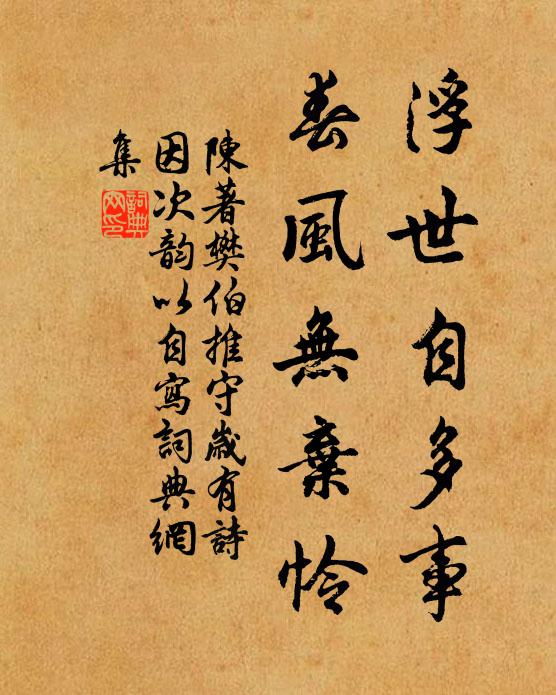 浮世自多事
春風無棄怜
陳著樊伯推守歲有詩
因次韵以自寫詞典網
集
詞典网印